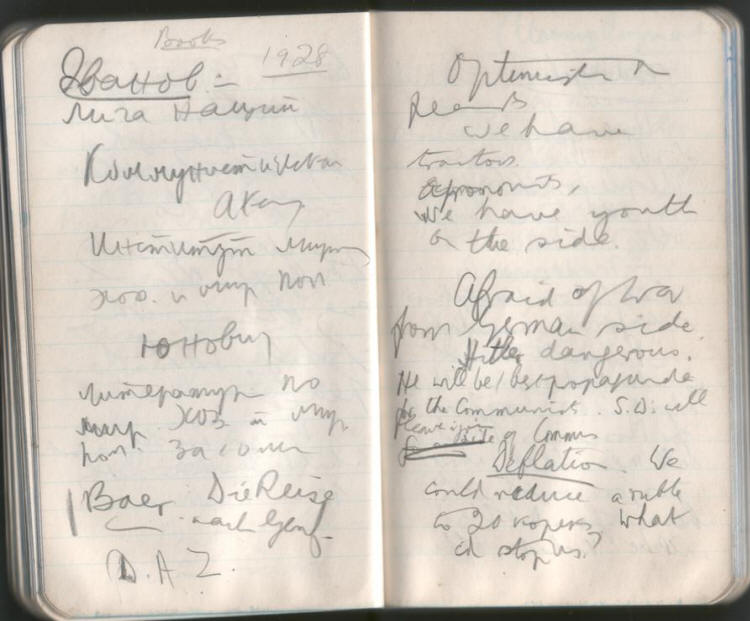 Books
1928
Иванов :-
Лига Наций
Коммунистическая
Акад
Институт мир
хоз. и мир пол
Юнович
литература по
мир. хоз и мир
пол. за
Baer Die Reise
nach Genf.
D.A.Z.
Optimistic
we have
tractors
agronomists,
We have youth
on the side.
Afraid of war
from German side.
Hitler dangerous.
He will be best propaganda
for the Communists. S.D. will
leave
side of Commu
Deflation. We
could reduce a ruble
to 20 kopeks. What
can stop us?